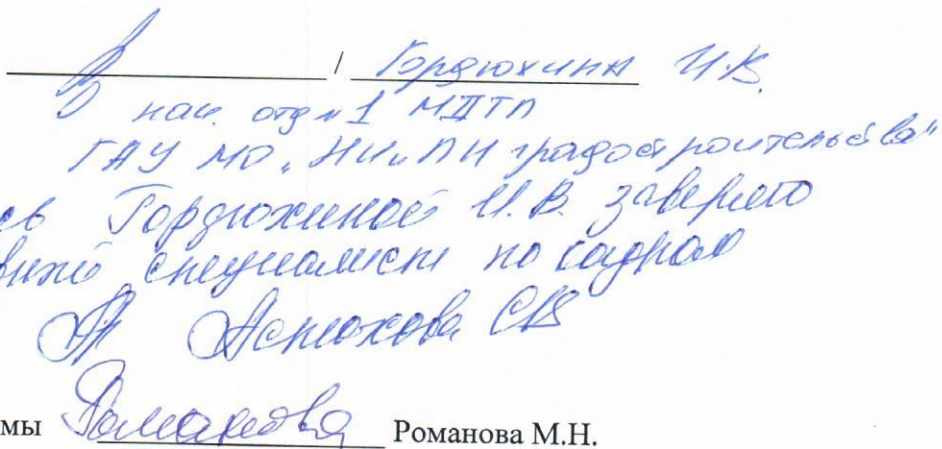 / Гордюхина И.В.
нач. отд №1 МДТП
ГАУ МО „НИиПИ градостроительства"
сь Гордюхиной И.В. заверяю
вный специалист по кадрам
Астюхова СВ
мы Романова Романова М.Н.